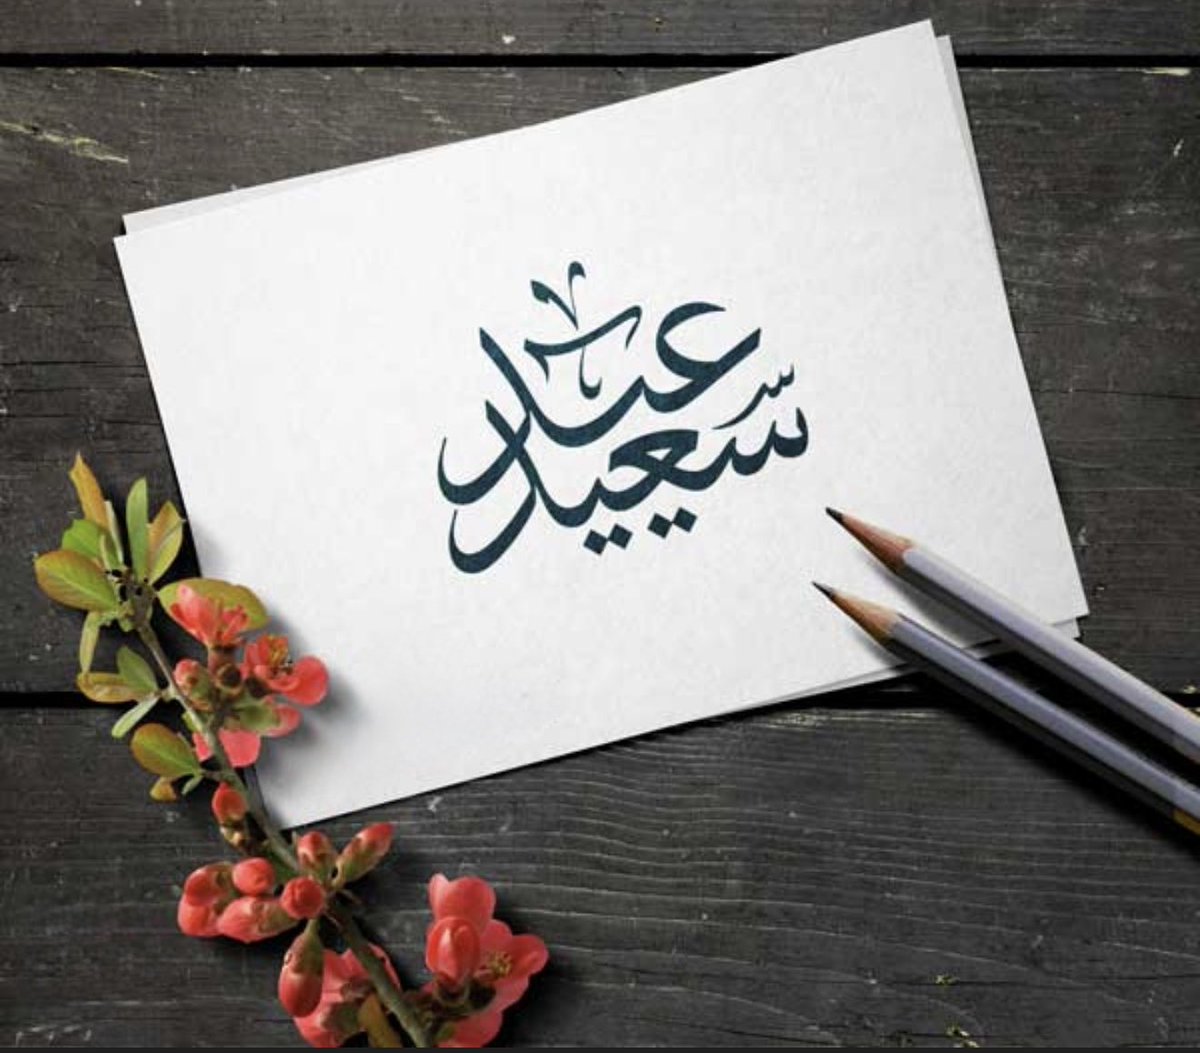 عيد
سعيد